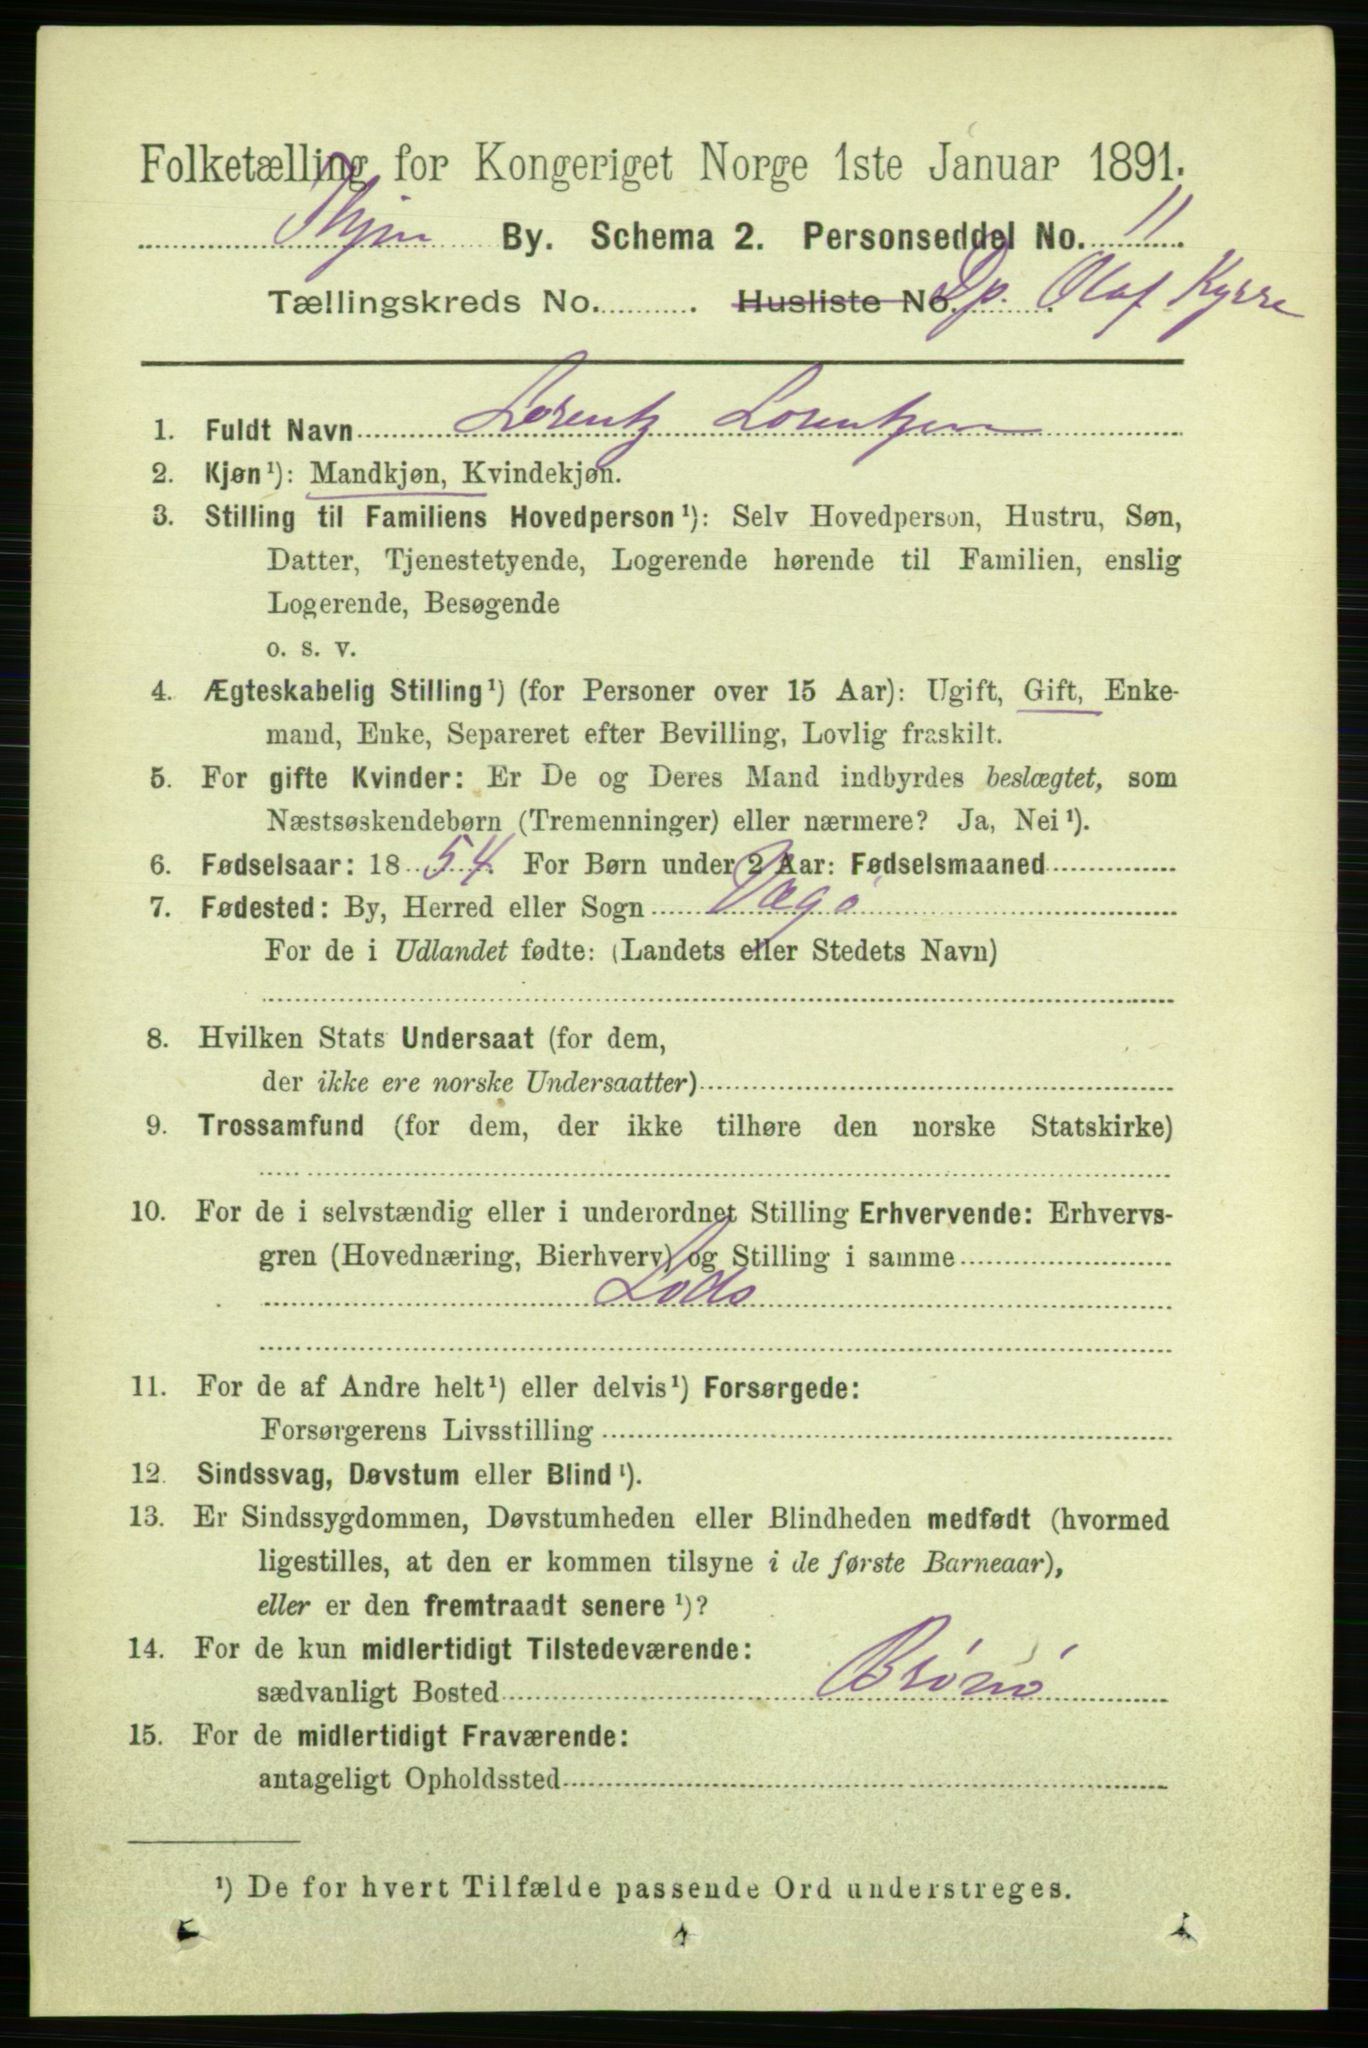 Folketælling for Kongeriget Norge 1ste Januar 1891.
By. Schema 2. Personseddel No. 11
Tællingskreds No. . Husliste No. Dp. Olaf Kyrre
1. Fuldt Navn Lorentz Lorentzen
2. Kjøn¹): Mandkjøn, Kvindekjøn.
3. Stilling til Familiens Hovedperson¹): Selv Hovedperson, Hustru, Søn,
Datter, Tjenestetyende, Logerende hørende til Familien, enslig
Logerende, Besøgende
o. s. v.
4. Ægteskabelig Stilling¹) (for Personer over 15 Aar): Ugift, Gift, Enke-
mand, Enke, Separeret efter Bevilling, Lovlig fraskilt.
5. For gifte Kvinder: Er De og Deres Mand indbyrdes beslægtet, som
Næstsøskendebørn (Tremenninger) eller nærmere? Ja, Nei¹).
6. Fødselsaar: 1854. For Børn under 2 Aar: Fødselsmaaned
7. Fødested: By, Herred eller Sogn Vegø
For de i Udlandet fødte: (Landets eller Stedets Navn)
8. Hvilken Stats Undersaat (for dem,
der ikke ere norske Undersaatter)
9. Trossamfund (for dem, der ikke tilhøre den norske Statskirke)
10. For de i selvstændig eller i underordnet Stilling Erhvervende: Erhvervs-
gren (Hovednæring, Bierhverv) og Stilling i samme
Lods
11. For de af Andre helt¹) eller delvis¹) Forsørgede:
Forsørgerens Livsstilling
12. Sindssvag, Døvstum eller Blind¹).
13. Er Sindssygdommen, Døvstumheden eller Blindheden medfødt (hvormed
ligestilles, at den er kommen tilsyne i de første Barneaar),
eller er den fremtraadt senere¹)?
14. For de kun midlertidigt Tilstedeværende:
sædvanligt Bosted Brønø
15. For de midlertidigt Fraværende:
antageligt Opholdssted
¹) De for hvert Tilfælde passende Ord understreges.